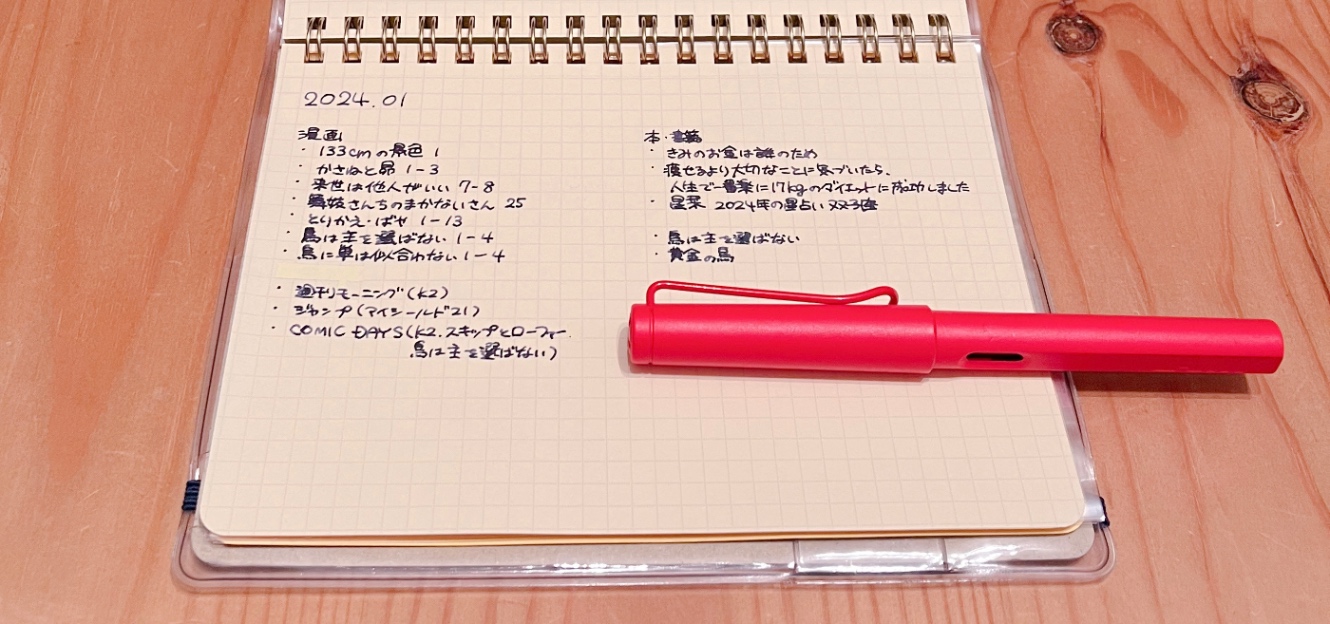 2024.01
漫画
・133cmの景色 1
・かさねと昴 1-3
・来世は他人がいい 7-8
・舞妓さんちのまかないさん 25
・とりかえ・ばや 1-13
・烏は主を選ばない 1-4
・烏に単は似合わない 1-4
・週刊モーニング(K2)
・ジャンプ(アイシールド21)
・COMIC DAYS(K2.スキップとローファー.
烏は主を選ばない)
本・書籍
・きみのお金は誰のため
・痩せるより大切なことに気づいたら、
人生で一番楽に17kgのダイエットに成功しました
・星栞 2024年の星占い 双子座
・烏は主を選ばない
・黄金の烏